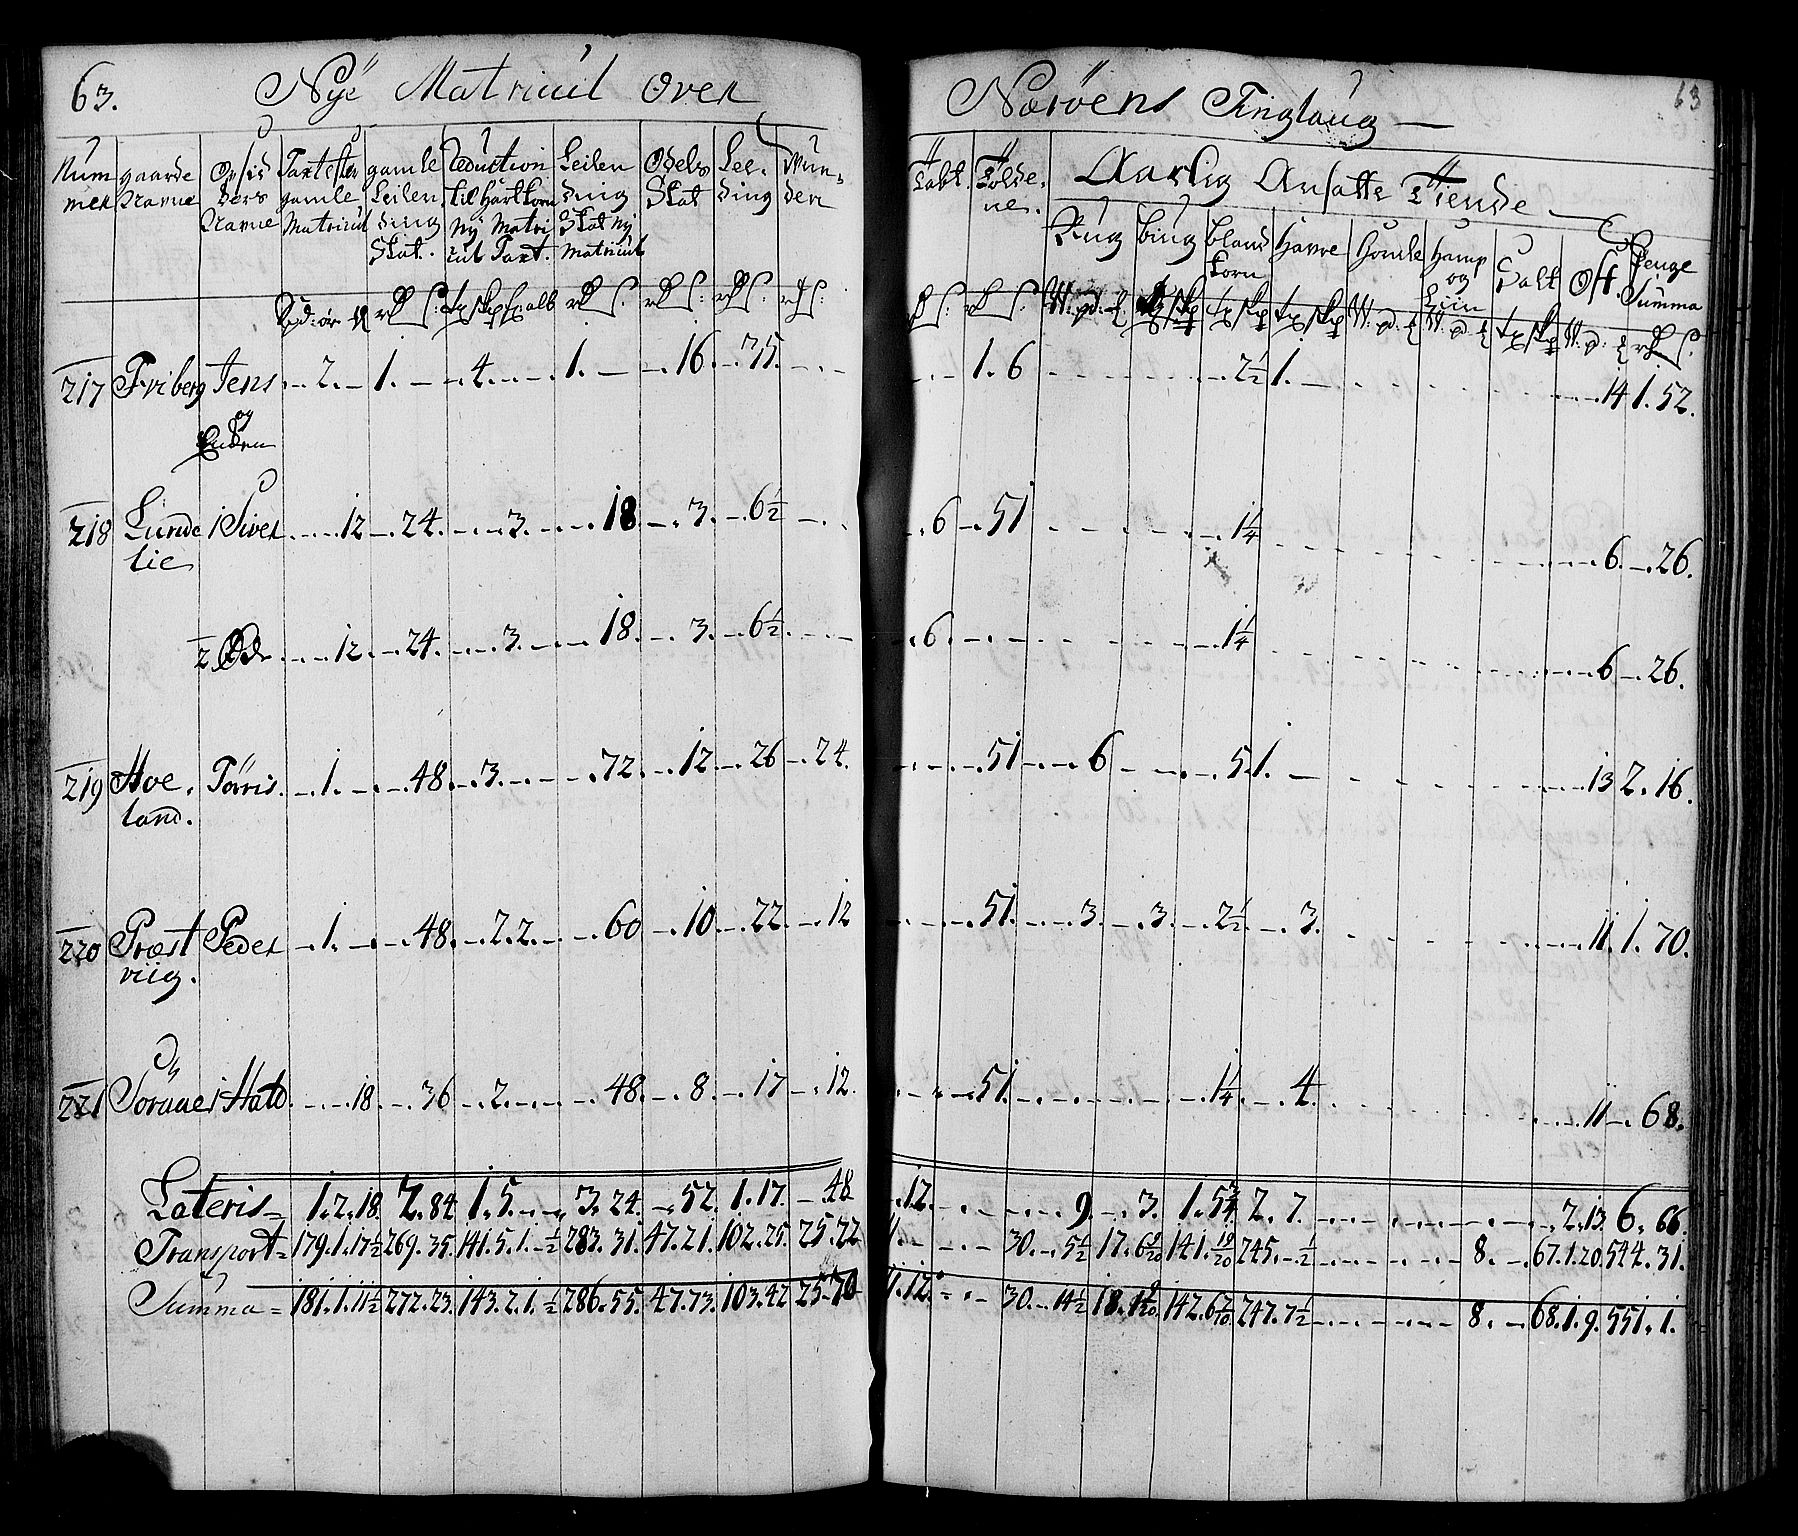 63. Nÿe Matricul Over
Nærøens Tinglaug 63
Num mer
gaarde Navne
Opsid ders Navne
Taxt efter gamle Matricul
gamle Leilen ding Skat.
Reduction til Hartkorn nÿ Matri cul Taxt.
Leilen ding Skat nÿ Matricul
Odels Skat
Lee- ding
Taldt. Tolde. ne.
Aarlig Ansatte Tiende
Rug biug bland korn Havre Homle Hamp og Liin Salt Ost. Penge Summa
217 Friberg Jens .. 2. 1. 4. 1. 16. 35. 1. 6 2½ 1. 14 1. 52.
og
Enken
218 Lunde 1 Siver 12 24. 3. 18 3. 6½ 6 51 1¼ 6. 26.
lie
2 Øde 12 24. 3. 18. 3. 6½ 6 1¼ 6 26.
219 Hoe. Tørris. 1. 48. 3. 72. 12. 26 24. 51 6 5. 1. 13 2. 16.
land.
220 Præst Peder 1. 48. 2. 2. 60 10 22. 12 51. 3. 3. 2½ 3. 11. 1. 70.
viig.
221 Søraae 1 Hald 18. 36 2. 48. 8. 17 12. 51. 1¼ 4. 11 68.
Lateris = 1. 2. 18. 2. 84. 1. 5. 3. 24. 52. 1. 17. 48 12. 9. 3. 1. 5¾ 2. 7. 2. 13. 6. 66.
Transport = 179. 1. 17½ 269. 35. 141. 5. 1. ½ 283. 31. 47. 21. 102. 25. 25. 22 30. 5½ 17. 141. 245. ½ 8. 67. 1. 20. 544. 31.
Summa = 181. 1. 11½ 272. 23. 143. 2. 1. ½ 286. 55. 47. 73. 103. 42 25. 70 12. 30. 14½ 18. 142. 247. 7½ 8. 68. 1. 9. 551. 1.